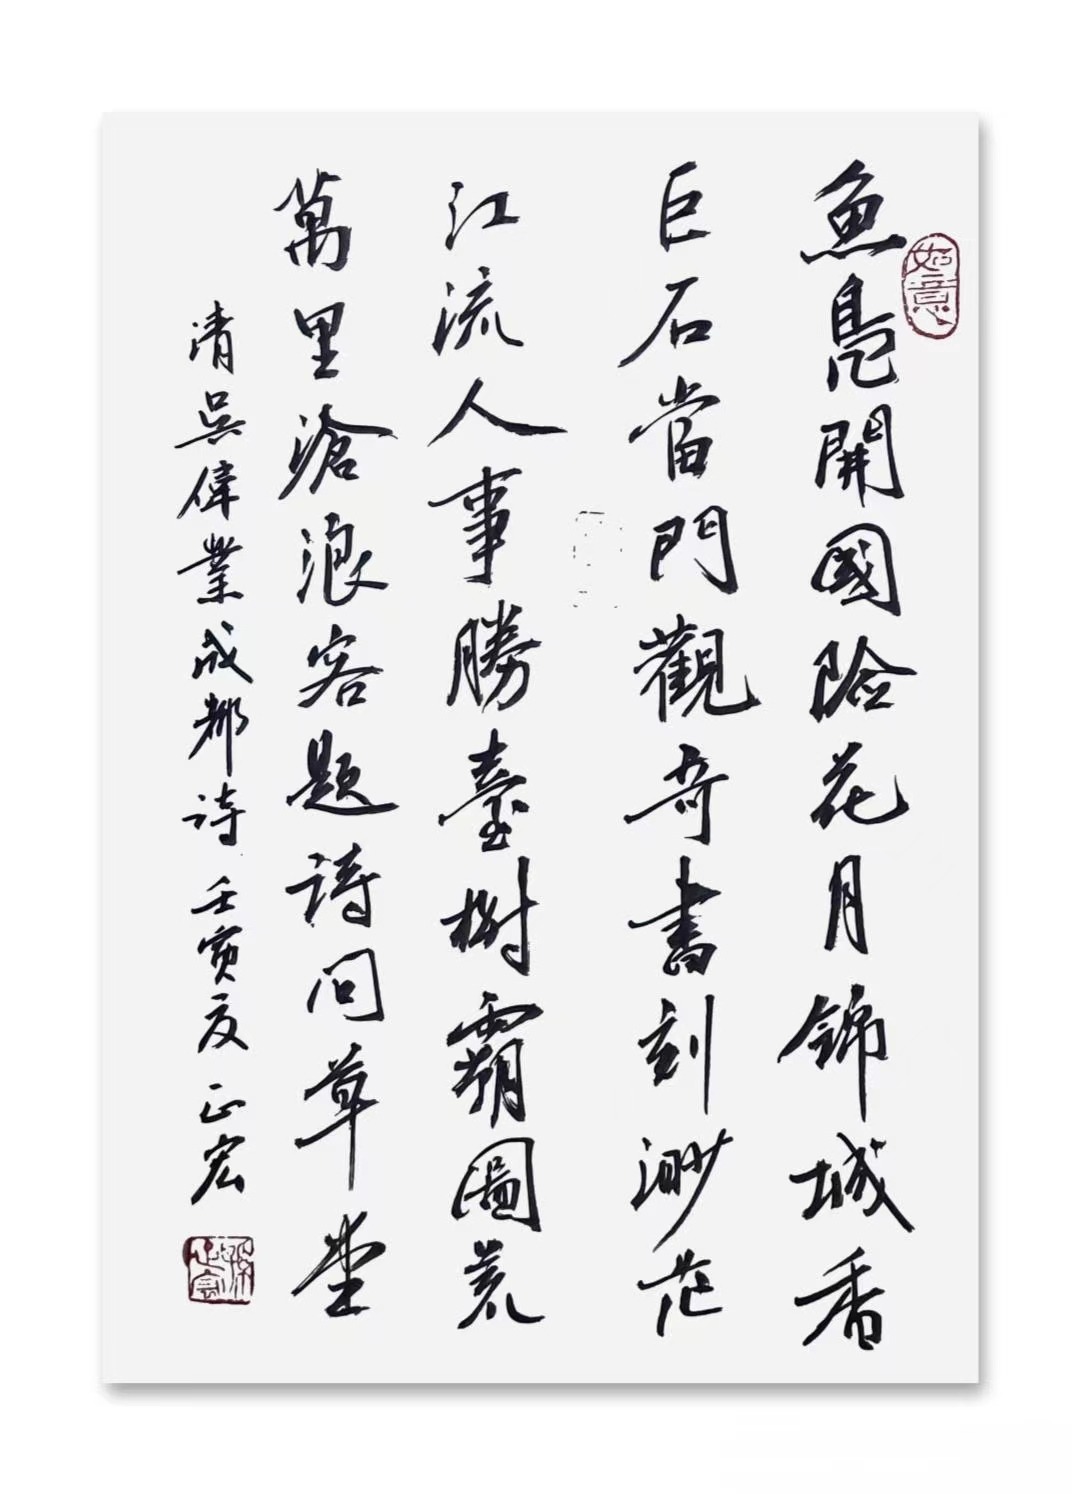 魚鳧開國險花月錦城香
巨石當門觀奇書刻渺茫
江流人事勝臺榭霸圖荒
萬里滄浪客題詩問草堂
清吳偉業成都詩 壬寅夏 正宏
如意